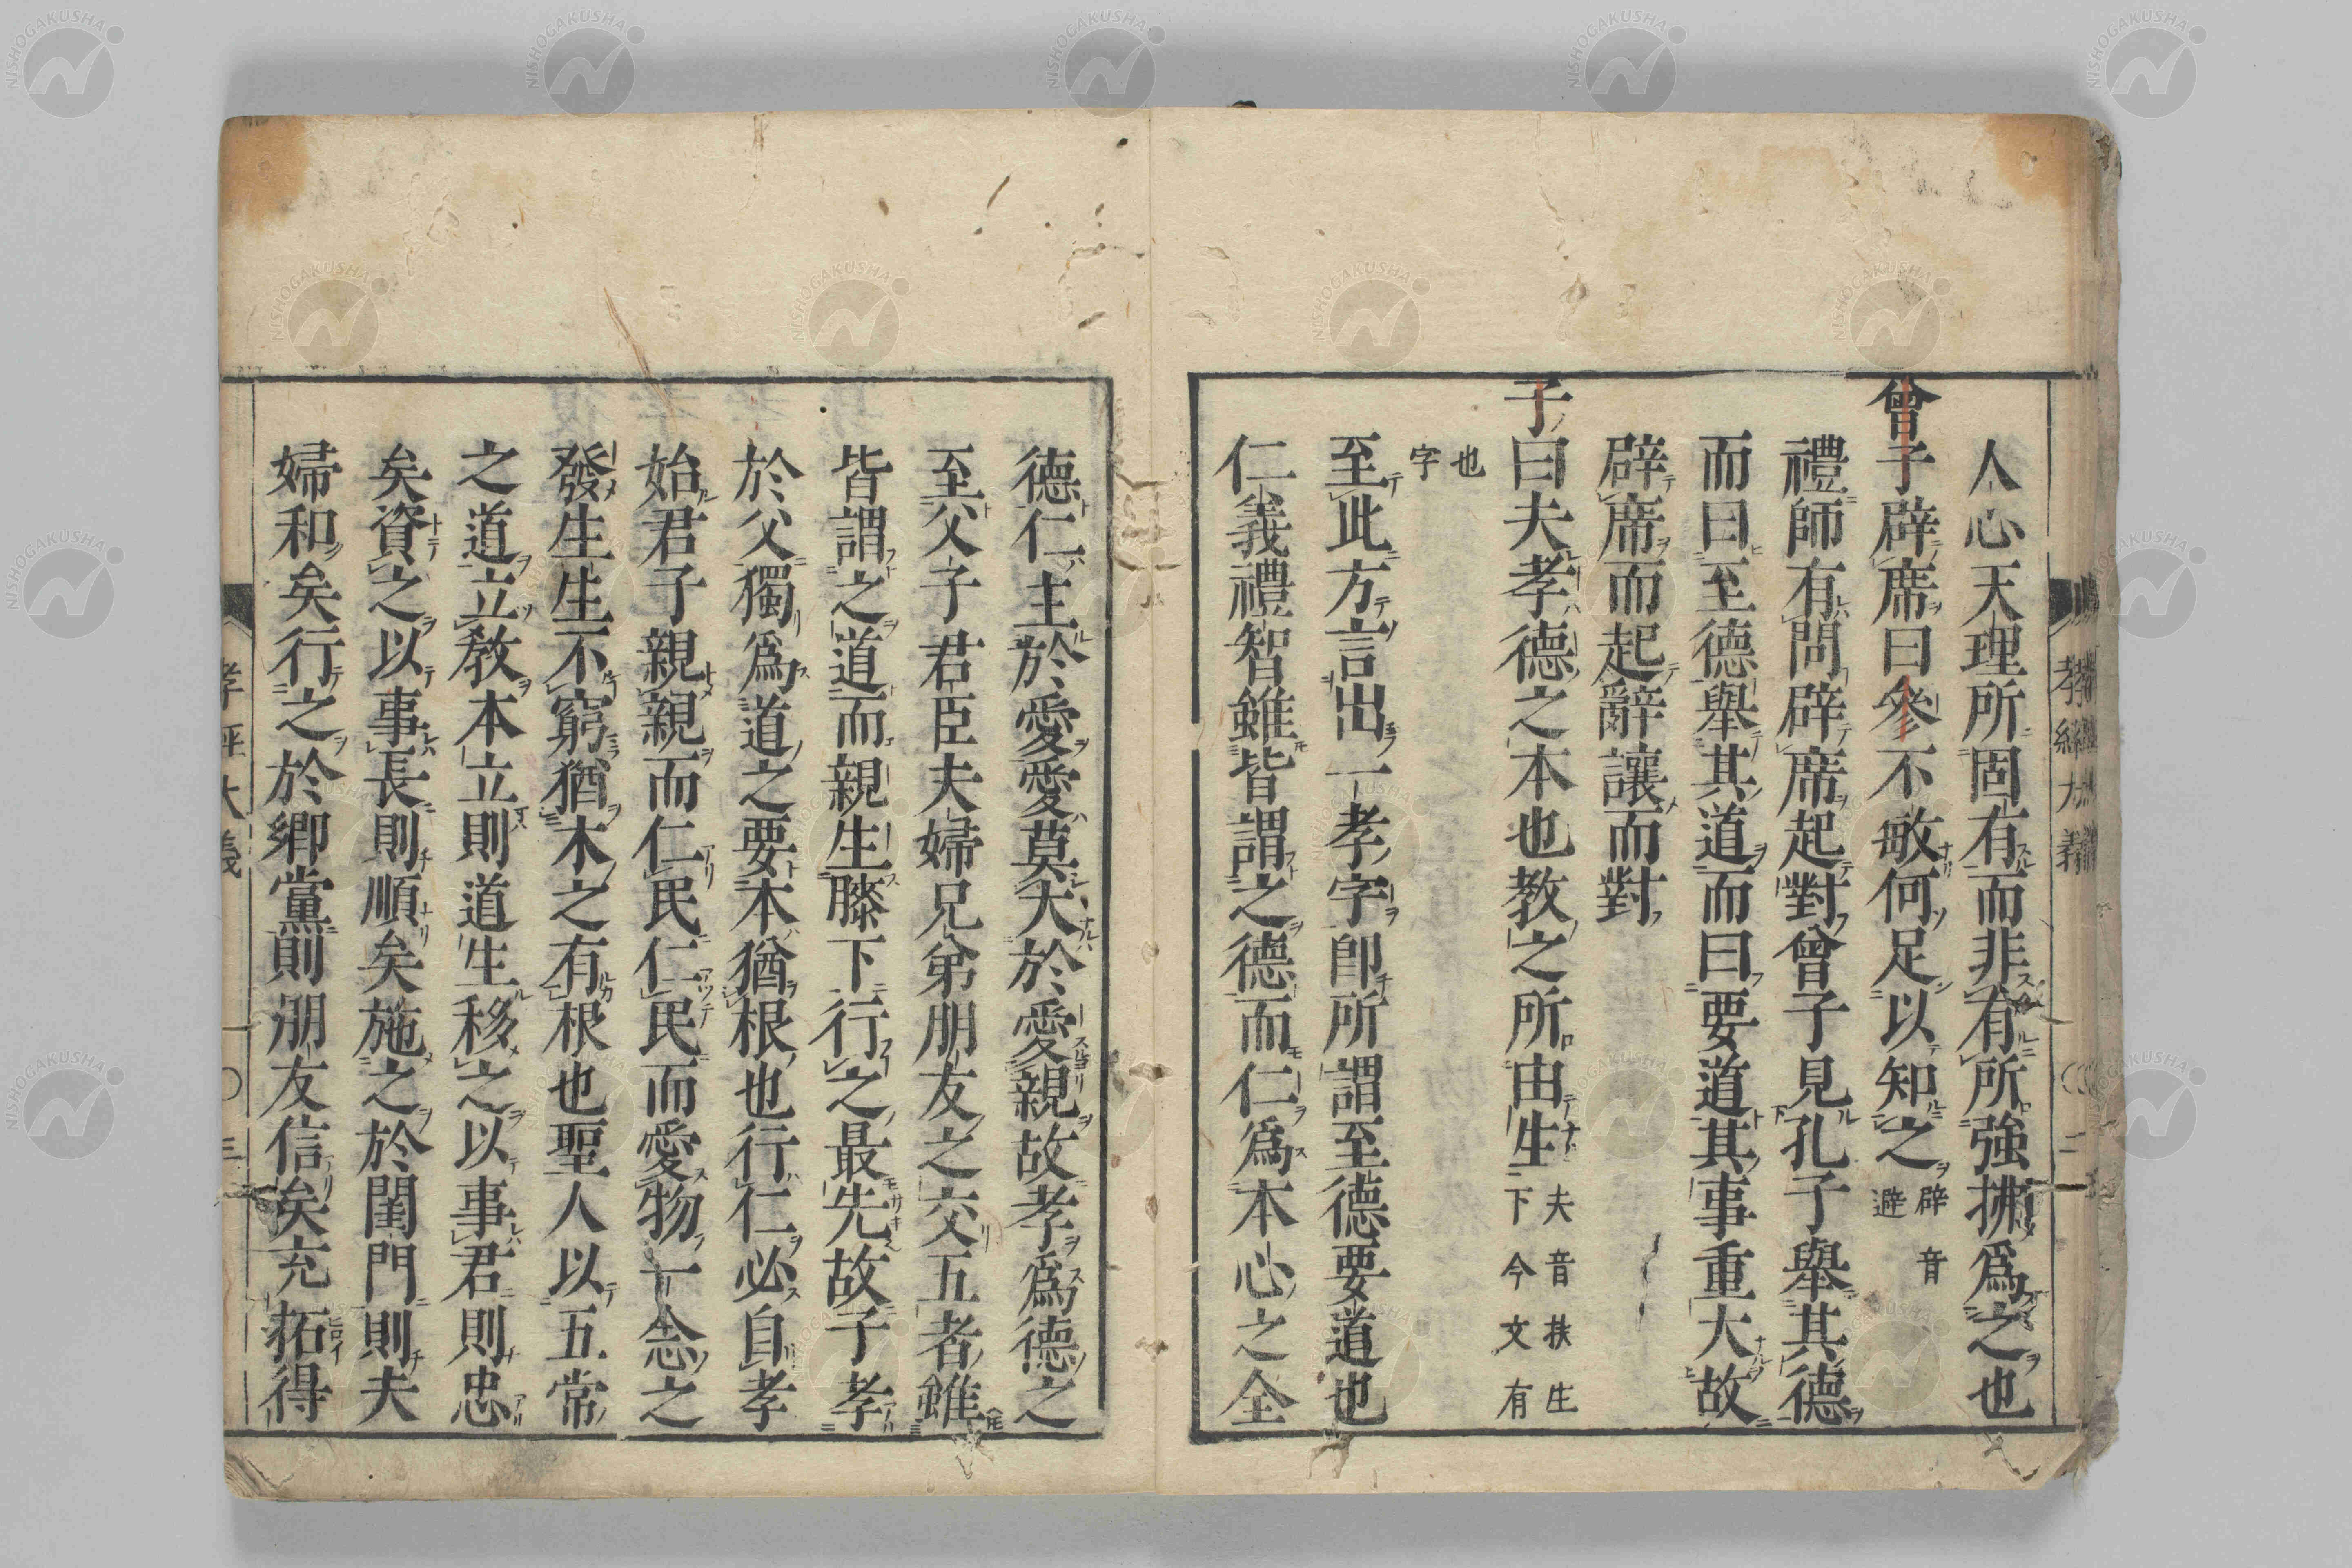 人心天理所固有而非有所強拂爲之也
曾子辟席曰參不敏何足以知之辟音避
禮師有問辟席起對曾子見孔子舉其德
而曰至德舉其道而曰要道其事重大故
辟席而起辭讓而對
子曰夫孝德之本也教之所由生夫音扶生下今文有
也字
至此方言出一孝字卽所謂至德要道也
仁義禮智雖皆謂之德而仁爲本心之全
德仁主於愛愛莫大於愛親故孝爲德之
至父子君臣夫婦兄弟朋友之交五者雖
皆謂之道而親生膝下行之最先故子孝
於父獨爲道之要本猶根也行仁必自孝
始君子親親而仁民仁民而愛物一念之
發生生不窮猶木之有根也聖人以五常
之道立教本立則道生移之以事君則忠
矣資之以事長則順矣施之於閨門則夫
婦和矣行之於鄉黨則朋友信矣充拓得
孝經大義 二
孝經大義 三
NISHOGAKUSHA